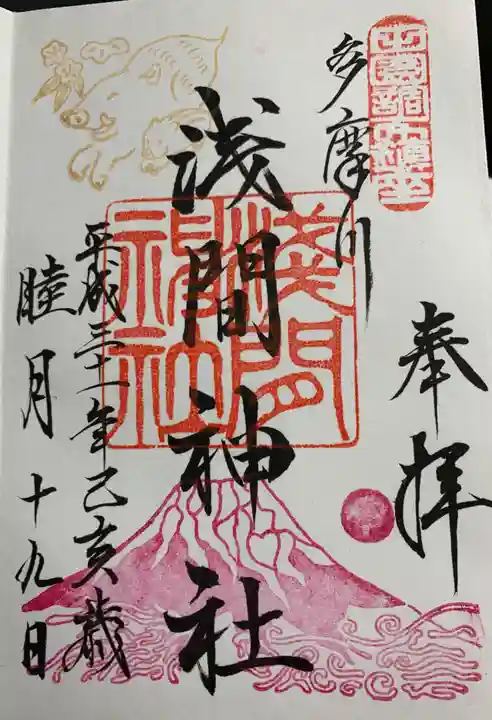 奉拝
多摩川
浅間神社
平成三十一年己亥歳
睦月十九日
浅間神社